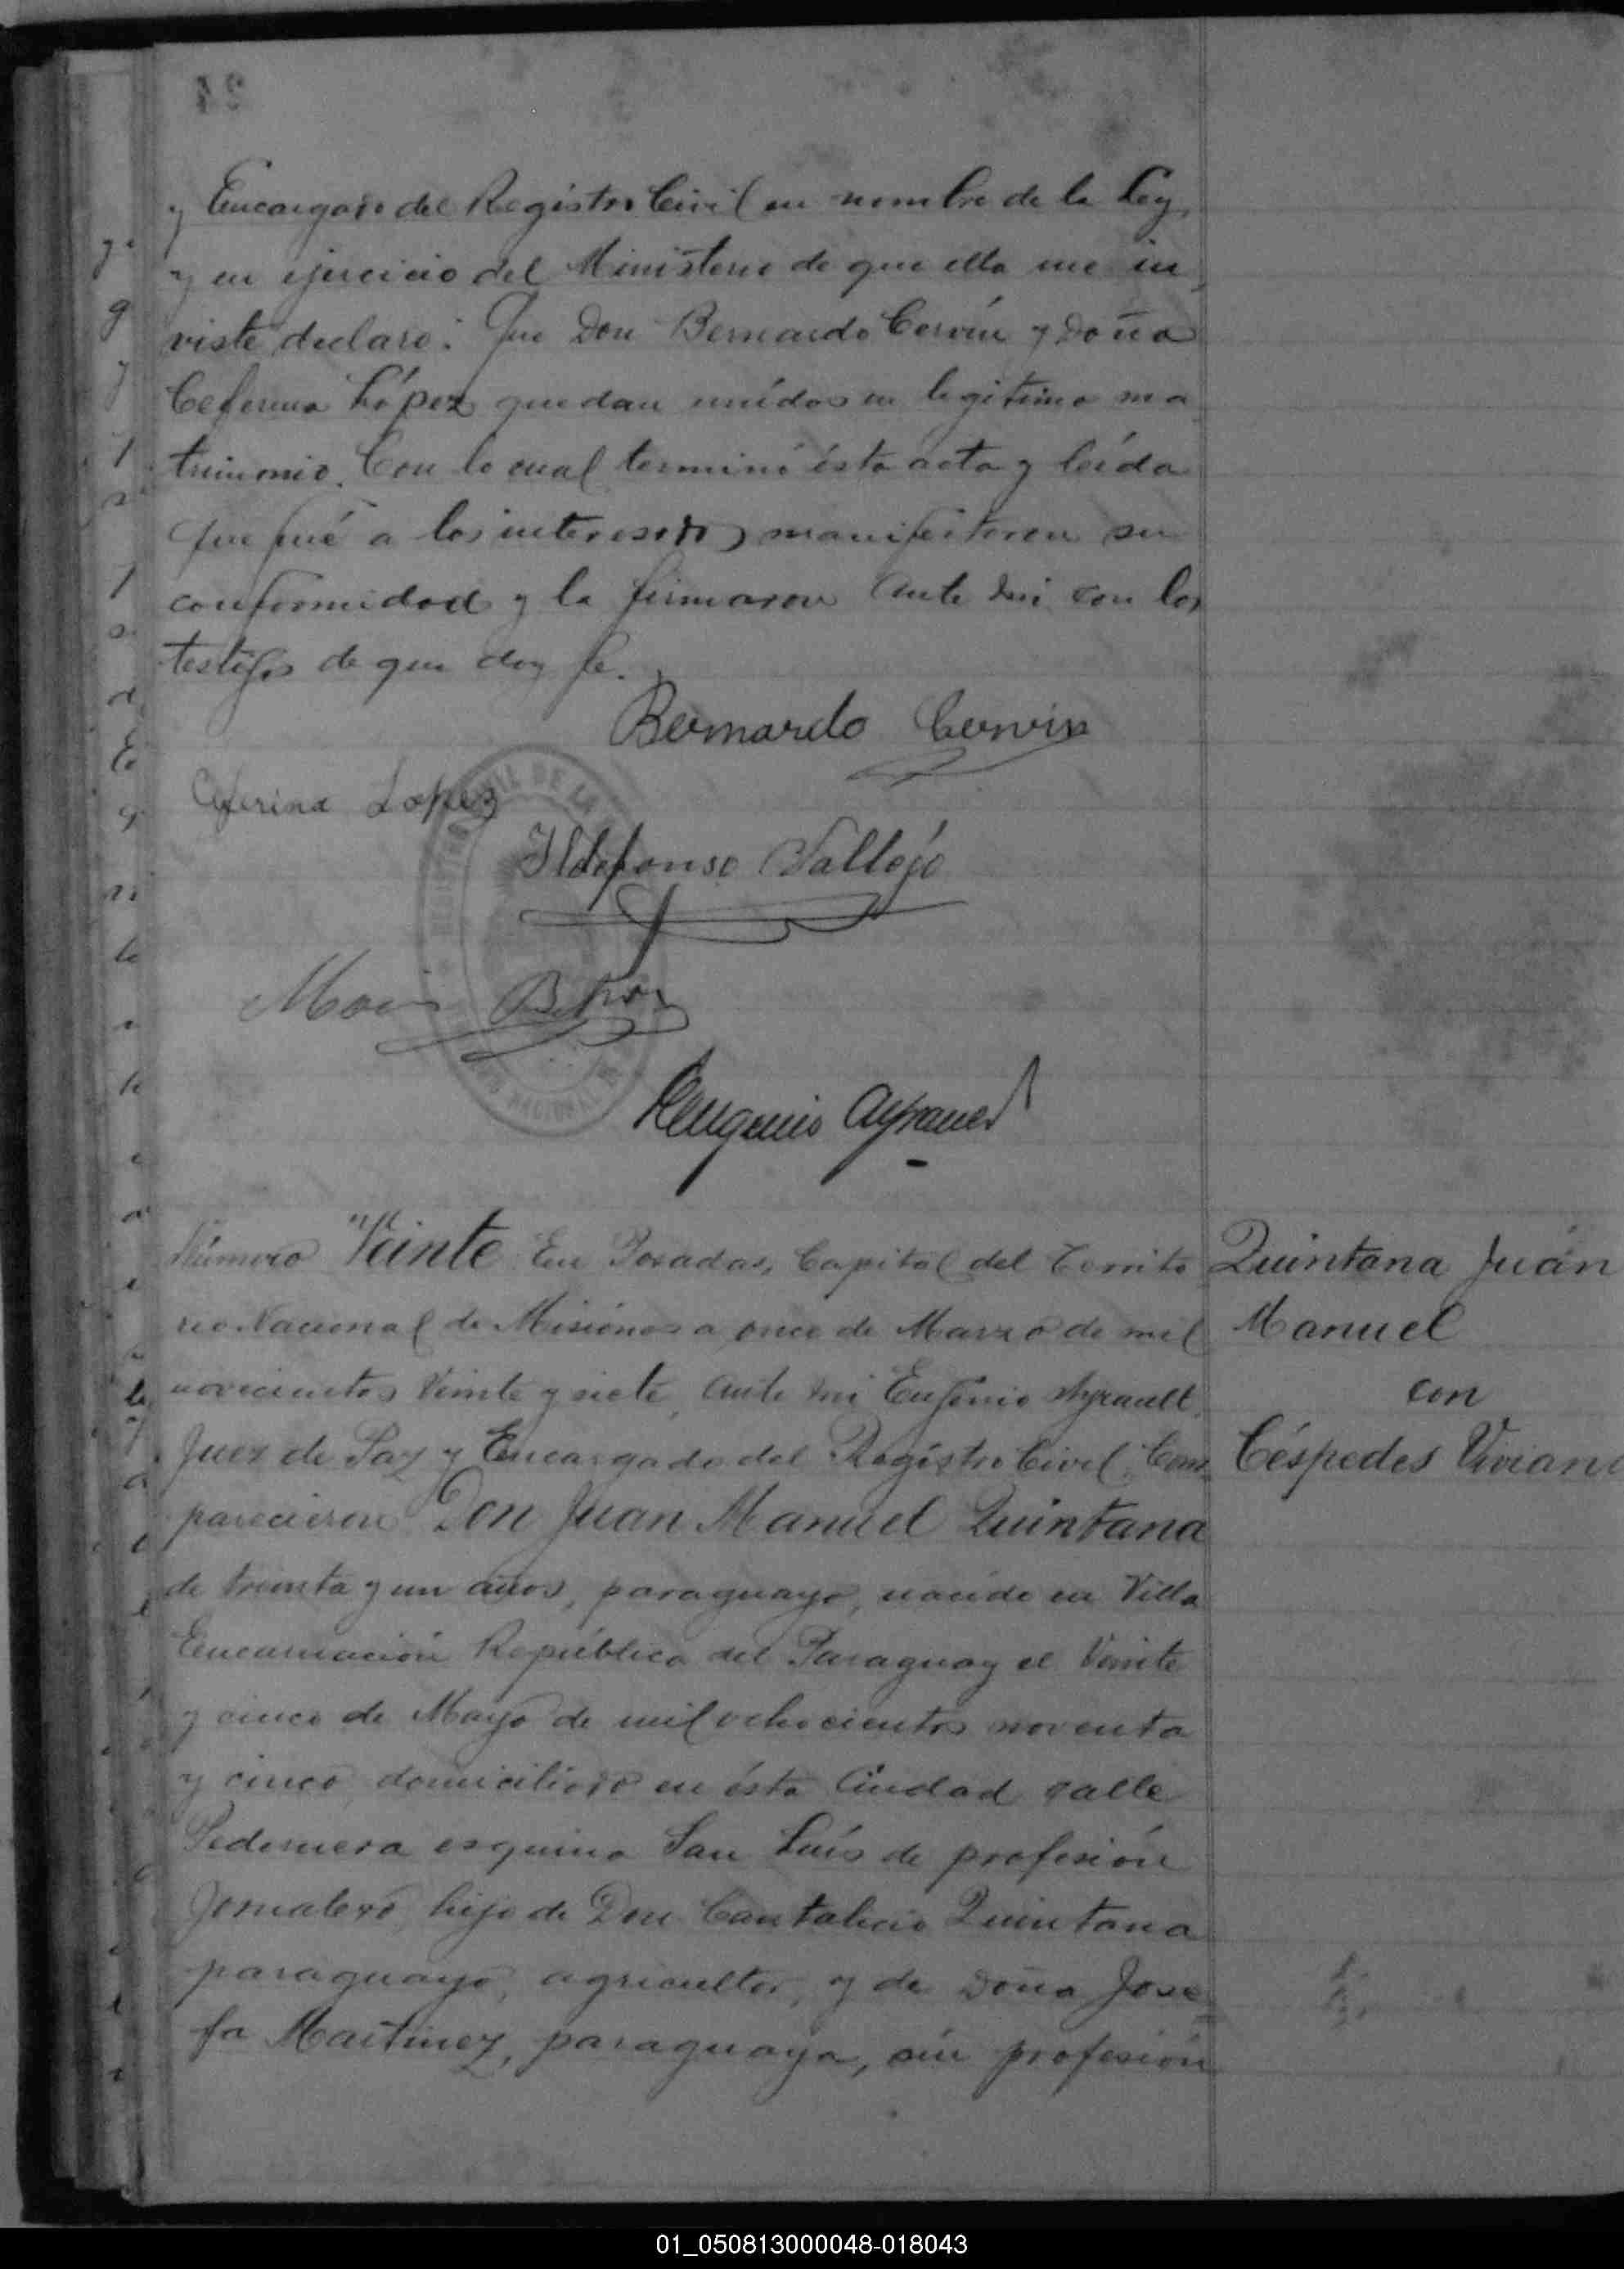 y Encargado del Registro Civil en nombre de la Ley
y en ejercicio del Ministerio de que ella me in
viste declaro: Que Don Bernardo Cervín y Doña
Ceferina López quedan unídos en legitimo ma
trimonio. Con lo cual terminó ésta acta y leída
que fué a los interesados manifestaron su
conformidad y la firmaron ante mi con los
testigos de que doy fe.
Bernardo Cervin
Ceferina Lopez
Ildefonso Vallejo
Eugenio Ayrault
Número Veinte En Posadas, Capital del Territo
rio Nacional de Misiónes a once de Marzo de mil
novecientos veinte y siete, ante mi Eugenio Ayrault
Juez de Paz y Encargado del Registro Civil, Com
parecieron Don Juan Manuel Quintana
de treinta y un años, paraguayo, nacido en Villa
Encarnación República del Paraguay el Veinte
y cinco de Mayo de mil ochocientos noventa
y cinco, domiciliado en ésta Ciudad calle
Pedernera esquina San Luís de profesión
Jornalero, hijo de Don Cantalicio Quintana
paraguayo, agricultor, y de Doña Jose
fa Martinez, paraguaya, sin profesión
Quintana Juán
Manuel
con
Céspedes
01_050813000048-018043